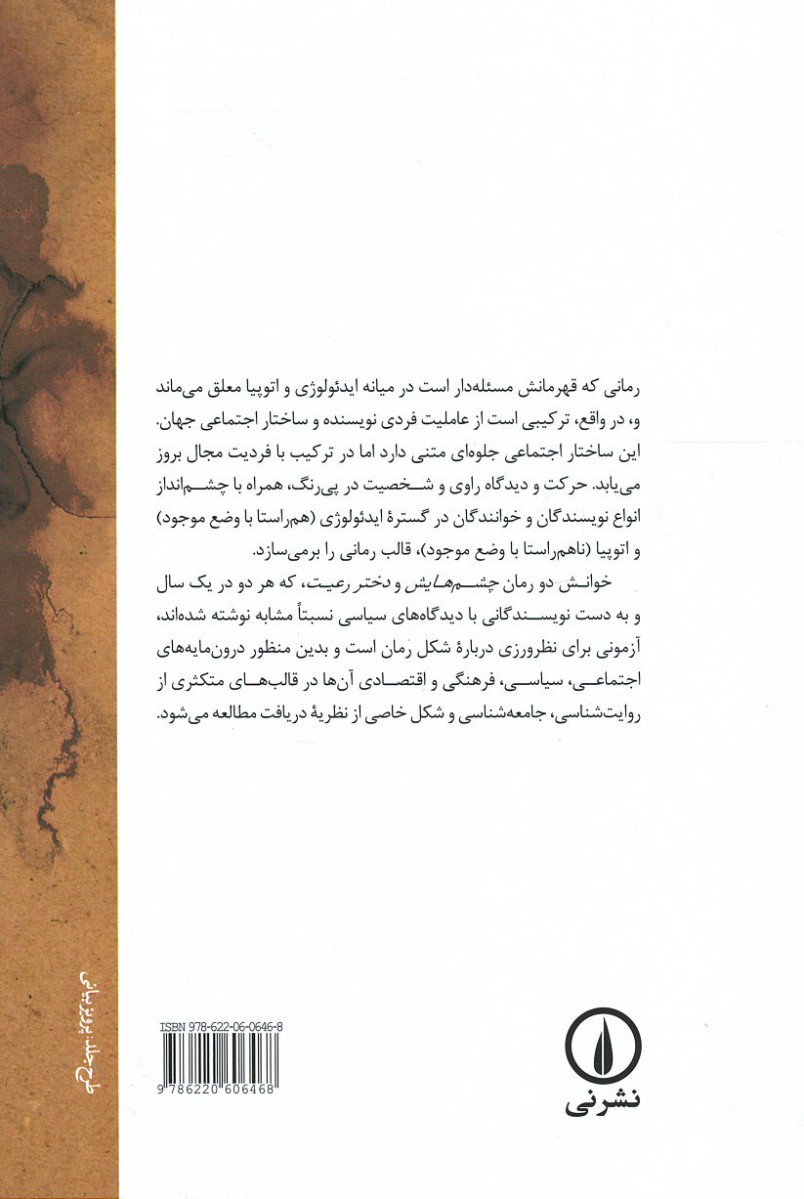 رمانی که قهرمانش مسئله‌دار است در میانه ایدئولوژی و اتوپیا معلق می‌ماند
و، در واقع، ترکیبی است از عاملیت فردی نویسنده و ساختار اجتماعی جهان.
این ساختار اجتماعی جلوه‌ای متنی دارد اما در ترکیب با فردیت مجال بروز
می‌یابد. حرکت و دیدگاه راوی و شخصیت در پی‌رنگ، همراه با چشم‌انداز
انواع نویسندگان و خوانندگان در گسترهٔ ایدئولوژی (هم‌راستا با وضع موجود)
و اتوپیا (ناهم‌راستا با وضع موجود)، قالب رمانی را برمی‌سازد.
خوانش دو رمان چشم‌هایش و دختر رعیت، که هر دو در یک سال
و به دست نویسندگانی با دیدگاه‌های سیاسی نسبتاً مشابه نوشته شده‌اند،
آزمونی برای نظرورزی دربارهٔ شکل رمان است و بدین منظور درون‌مایه‌های
اجتماعی، سیاسی، فرهنگی و اقتصادی آن‌ها در قالب‌های متکثری از
روایت‌شناسی، جامعه‌شناسی و شکل خاصی از نظریهٔ دریافت مطالعه می‌شود.
طرح جلد: پرویز بیانی
ISBN 978-622-06-0646-8
9 786220 606468
نشرنی